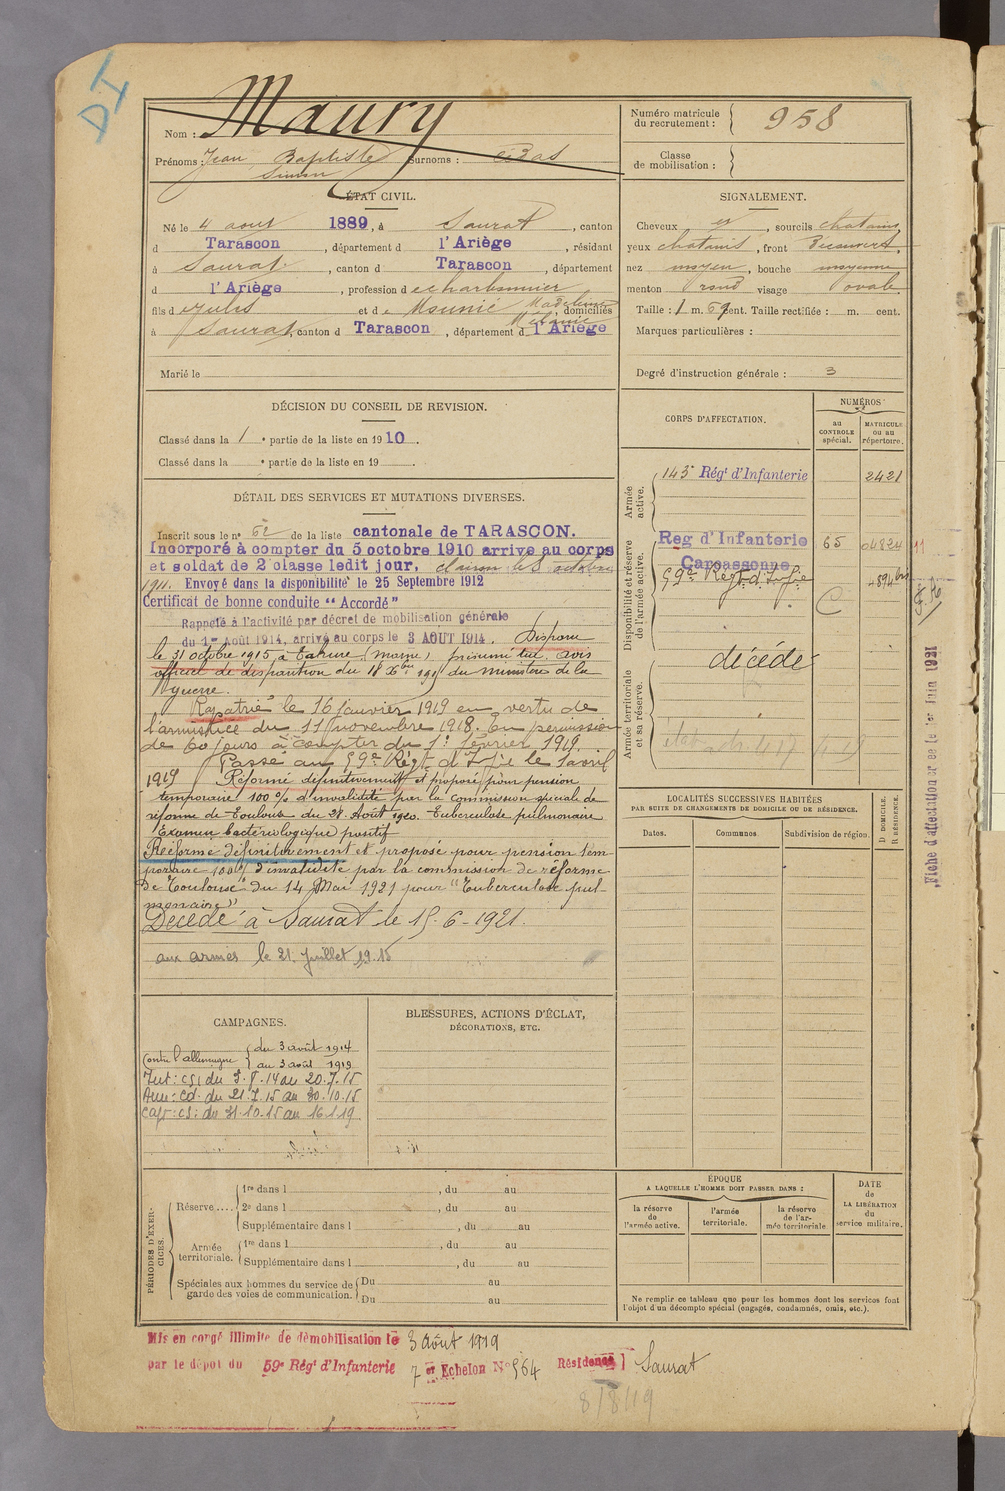 DI
Nom : Maury
Prénoms : Jean Baptiste Surnoms :
Simon
Numéro matricule
du recrutement : 958
Classe
de mobilisation :
ÉTAT CIVIL.
Né le 4 août 1889, à Saurat, canton
d Tarascon, département d l'Ariège, résidant
à Saurat, canton d Tarascon, département
d l'Ariège, profession d charbonnier
fils d Jules et d e Madeleine, domiciliés
Mélanie
à Saurat, canton d Tarascon, département d l'Ariège
Marié le
SIGNALEMENT.
Cheveux et, sourcils chatains
yeux chatains, front découvert,
nez moyen, bouche moyenne
menton rond visage ovale
Taille : 1 m. 69 cent. Taille rectifiée : m. cent.
Marques particulières :
Degré d'instruction générale : 3
DÉCISION DU CONSEIL DE REVISION.
Classé dans la 1 e partie de la liste en 1910.
Classé dans la e partie de la liste en 19 .
DÉTAIL DES SERVICES ET MUTATIONS DIVERSES.
Inscrit sous le n° 62 de la liste cantonale de TARASCON.
Incorporé à compter du 5 octobre 1910 arrivé au corps
et soldat de 2e classe ledit jour, clairon le 8 octobre
1911. Envoyé dans la disponibilité le 25 Septembre 1912
Certificat de bonne conduite "Accordé"
Rappelé à l'activité par décret de mobilisation générale
du 1er Août 1914, arrivé au corps le 3 AOUT 1914. Disparu
le 31 octobre 1915 à Tahure (Marne) présumé tué, avis
officiel de disparition du 18 Xbre 1915 du ministère de la
guerre.
Rapatrié le 16 janvier 1919 en vertu de
l'armistice du 11 novembre 1918. En permission
de 60 jours à compter du 1er février 1919.
Passé au 59e Régt d'Ifie le 1 avril
1919 Réformé définitivement et proposé pour pension
temporaire 100% d'invalidité par la commission spéciale de
réforme de Toulouse du 28 Août 1920. Tuberculose pulmonaire
Examen bactériologique positif
Réformé définitivement et proposé pour pension tem-
poraire 100% d'invalidité par la commission de réforme
de Toulouse du 14 Mai 1921 pour "Tuberculose pul-
monaire"
Décédé à Saurat le 15-6-1921.
aux armées le 21 juillet 1915
CORPS D'AFFECTATION.
NUMÉROS
au
CONTROLE
spécial.
MATRICULE
ou au
répertoire.
Armée
active.
143e Régt d'Infanterie 2421
Disponibilité et réserve
de l'armée active.
Reg d'Infanterie 65 04824
Carcassonne
59e Régt d'Ifie 4894 bis
C
Armée territoriale
et sa réserve.
décédé
Fiche d'affectation créée le 1er Juin 1921
LOCALITÉS SUCCESSIVES HABITÉES
PAR SUITE DE CHANGEMENTS DE DOMICILE OU DE RÉSIDENCE.
Dates.
Communes.
Subdivision de région.
D DOMICILE.
R RÉSIDENCE.
CAMPAGNES.
Contre l'allemagne { du 3 août 1914
au 3 août 1919
Int : CS : du 3.8.14 au 20.7.15
Arm : Cd. du 21.7.15 au 30.10.15
Cap : CS : du 31.10.15 au 16.1.19
BLESSURES, ACTIONS D'ÉCLAT,
DÉCORATIONS, ETC.
PÉRIODES D'EXER-
CICES.
Réserve ....
1re dans l , du au
2e dans l , du au
Supplémentaire dans l , du au
Armée
territoriale.
1re dans l , du au
Supplémentaire dans l , du au
Spéciales aux hommes du service de
garde des voies de communication.
Du au
Du au
ÉPOQUE
A LAQUELLE L'HOMME DOIT PASSER DANS :
la réserve
de
l'armée active.
l'armée
territoriale.
la réserve
de l'ar-
mée territoriale
DATE
de
LA LIBÉRATION
du
service militaire.
Ne remplir ce tableau que pour les hommes dont les services font
l'objet d'un décompte spécial (engagés, condamnés, omis, etc.).
Mis en congé illimité de démobilisation le 3 août 1919
par le dépôt du 59e Régt d'Infanterie 7 er Echelon N° 564 Résidence Saurat
8/8/19